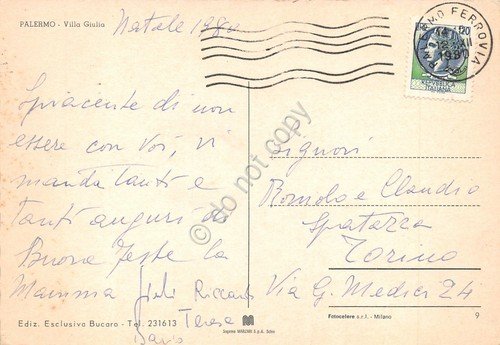 PALERMO - Villa Giulia
Natale 1980
Spiacente di non
essere con Voi, vi
manda tanti e
tanti auguri di
Buone Feste la
Mamma Giuli Riccardo
Teresa
Dario
MO FERROVIA
120
ITALIANA
Signori
Romolo e Claudia
Spatazza
Torino
Via G. Medici 24
do not copy
Ediz. Esclusiva Bucaro - Tel. 231613
M
Fotocelere s.r.l. - Milano
9